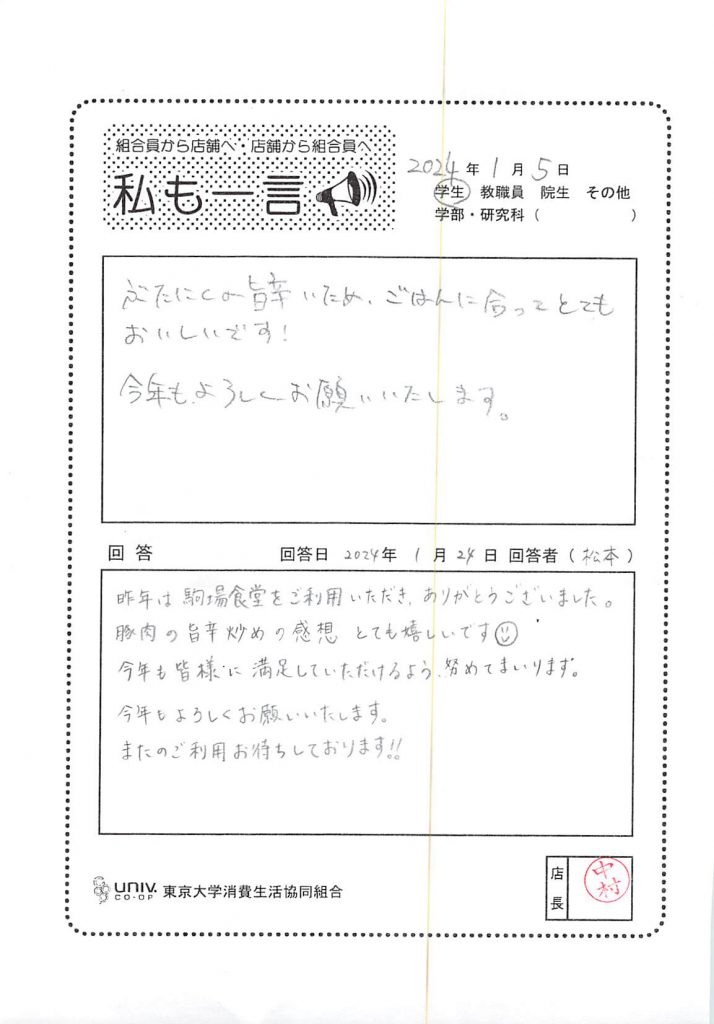 組合員から店舗へ・店舗から組合員へ
私も一言
2024年1月5日
学生 教職員 院生 その他
学部・研究科（ ）
ぶたにくの旨辛いため、ごはんに合ってとても
おいしいです!
今年もよろしくお願いいたします。
回答 回答日 2024年 1月24日 回答者（松本）
昨年は駒場食堂をご利用いただき、ありがとうございました。
豚肉の旨辛炒めの感想 とても嬉しいです
今年も皆様に満足していただけるよう、努めてまいります。
今年もよろしくお願いいたします。
またのご利用お待ちしております!!
UNIV. CO-OP 東京大学消費生活協同組合
店長 中村